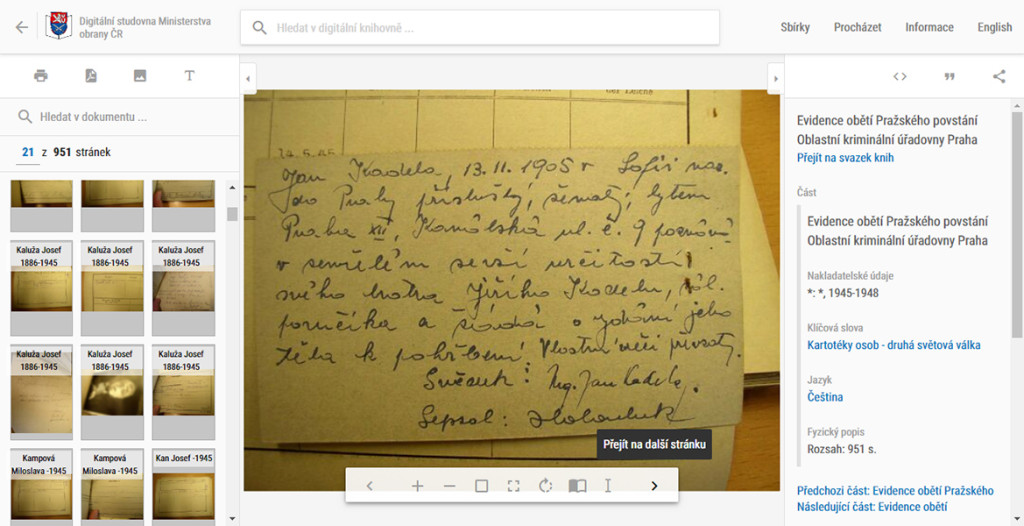 Digitální studovna Ministerstva
obrany ČR
Hledat v digitální knihovně ...
Sbírky
Procházet
Informace
English
T
Hledat v dokumentu ...
21 z 951 stránek
Kaluža Josef
1886-1945
Kaluža Josef
1886-1945
Kaluža Josef
1886-1945
Kaluža Josef
1886-1945
Kaluža Josef
1886-1945
Kaluža Josef
1886-1945
Kampová
Miloslava -1945
Kampová
Miloslava -1945
Kan Josef -1945
Jan Kadela, 13.11.1905 v Sofii nar.
do Prahy příslušný, ženatý, bytem
Praha XII, ul. č. 9
v zemřelém se vší určitostí
svého bratra Jiřího Kadelu,
poručíka a žádá o vydání jeho
těla k pohřbení. Vlastní věci převzaty.
Svědek: Ing. Jan Kadela.
Sepsal:
Přejít na další stránku
Evidence obětí Pražského povstání
Oblastní kriminální úřadovny Praha
Přejít na svazek knih
Část
Evidence obětí Pražského povstání
Oblastní kriminální úřadovny Praha
Nakladatelské údaje
*: *, 1945-1948
Klíčová slova
Kartotéky osob - druhá světová válka
Jazyk
Čeština
Fyzický popis
Rozsah: 951 s.
Předchozi část: Evidence obětí Pražského
Následující část: Evidence obětí